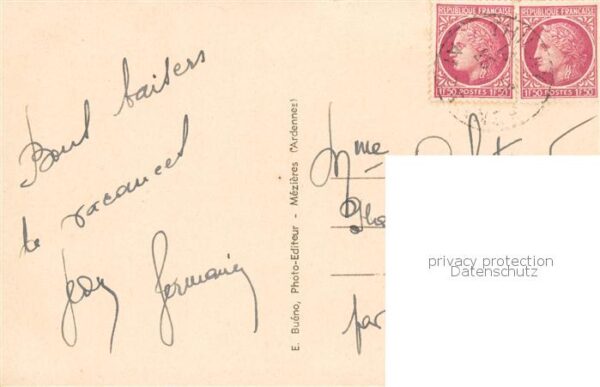 Bons baisers
de vacances
Jean Germain
E. Buéno, Photo-Editeur - Mézières (Ardennes)
RÉPUBLIQUE FRANÇAISE
1F50 POSTES 1F50
RÉPUBLIQUE FRANÇAISE
1F50 POSTES 1F50
Mme
par
privacy protection
Datenschutz